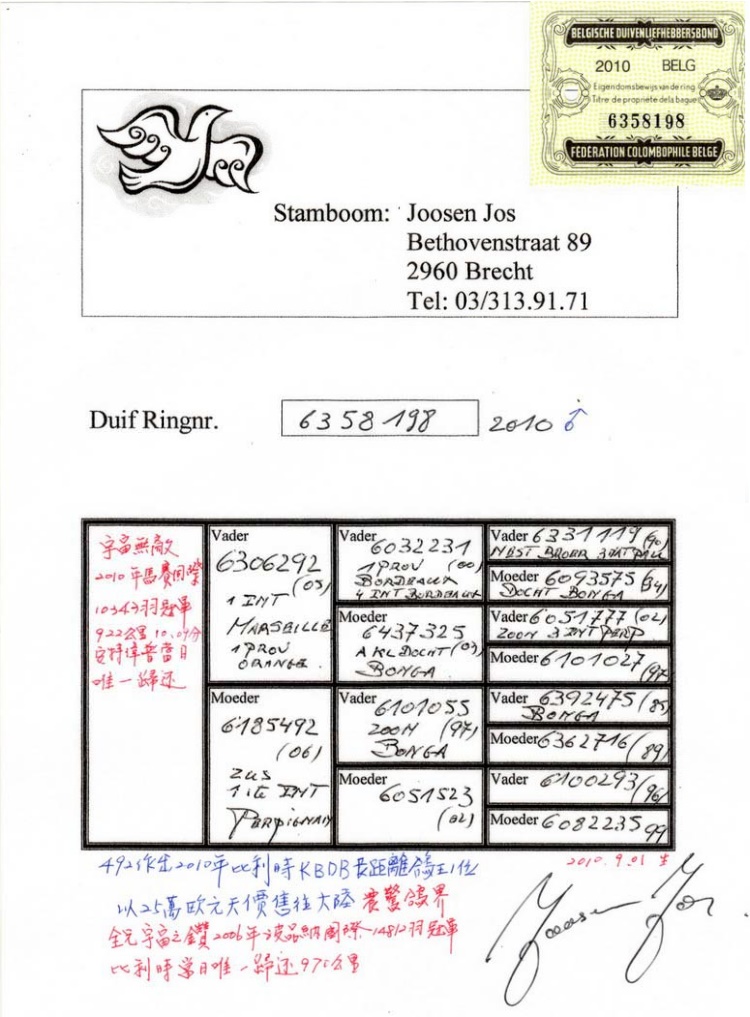 BELGISCHE DUIVENLIEFHEBBERSBOND
2010 BELG
Eigendomsbewijs van de ring
Titre de propriété de la bague
6358198
FÉDÉRATION COLOMBOPHILE BELGE
Stamboom: Joosen Jos
Bethovenstraat 89
2960 Brecht
Tel: 03/313.91.71
Duif Ringnr. 6358198 2010 ♂
宇宙無敵
2010年馬賽國際
10343羽冠軍
922公里
安特偉普當日
唯一歸还
Vader
6306292
(05)
1 INT
MARSEILLE
1 PROV
ORANGE
Moeder
6185492
(06)
ZUS
1ste INT
PERPIGNAN
Vader
6032231
1 PROV (00)
BORDEAUX
4 INT BORDEAUX
Moeder
6437325
A KL DOCHT (03)
BONGA
Vader
6101055
ZOON (97)
BONGA
Moeder
6051523
(02)
Vader 6331119 (90)
NEST BROER 3 NAT PAU
Moeder 6093575 (94)
DOCHT BONGA
Vader 6051777 (02)
ZOON 3 INT PERP
Moeder 6101027 (97)
Vader 6392475 (85)
BONGA
Moeder 6362716 (89)
Vader 6100293 (96)
Moeder 6082235 99
2010.9.01 生
492作出2010年比利時KBDB長距離鴿王1位
以25萬欧元天價售往大陸 震驚鴿界
宇宙之鑽2006年波品納國際14812羽冠軍
比利時當日唯一歸还975公里
Joosen Jos